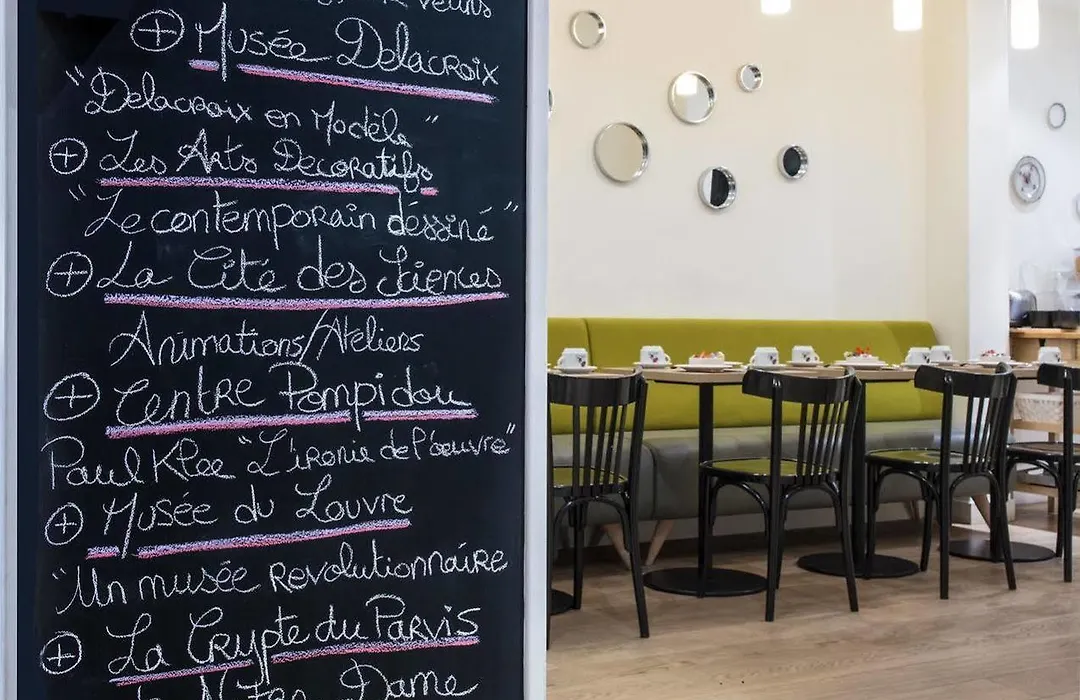 ⊕ Musée Delacroix
"Delacroix en Modèle"
⊕ Les Arts Decoratifs
"Le contemporain déssiné"
⊕ La Cité des Sciences
Animations/Ateliers
⊕ Centre Pompidou
Paul Klee "L'ironie de l'oeuvre"
⊕ Musée du Louvre
"Un musée Revolutionnaire
⊕ La Crypte du Parvis
Notre Dame